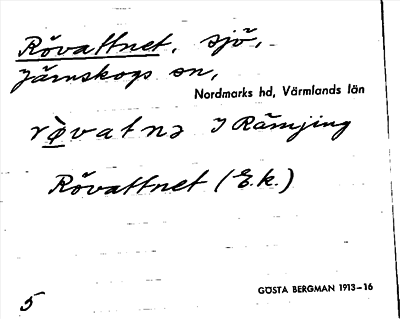 Rövattnet, sjö,
Järnskogs sn,
Nordmarks hd, Värmlands län
rø̀vatnə I Rämjing
Rövattnet (E.k.)
5
GÖSTA BERGMAN 1913-16